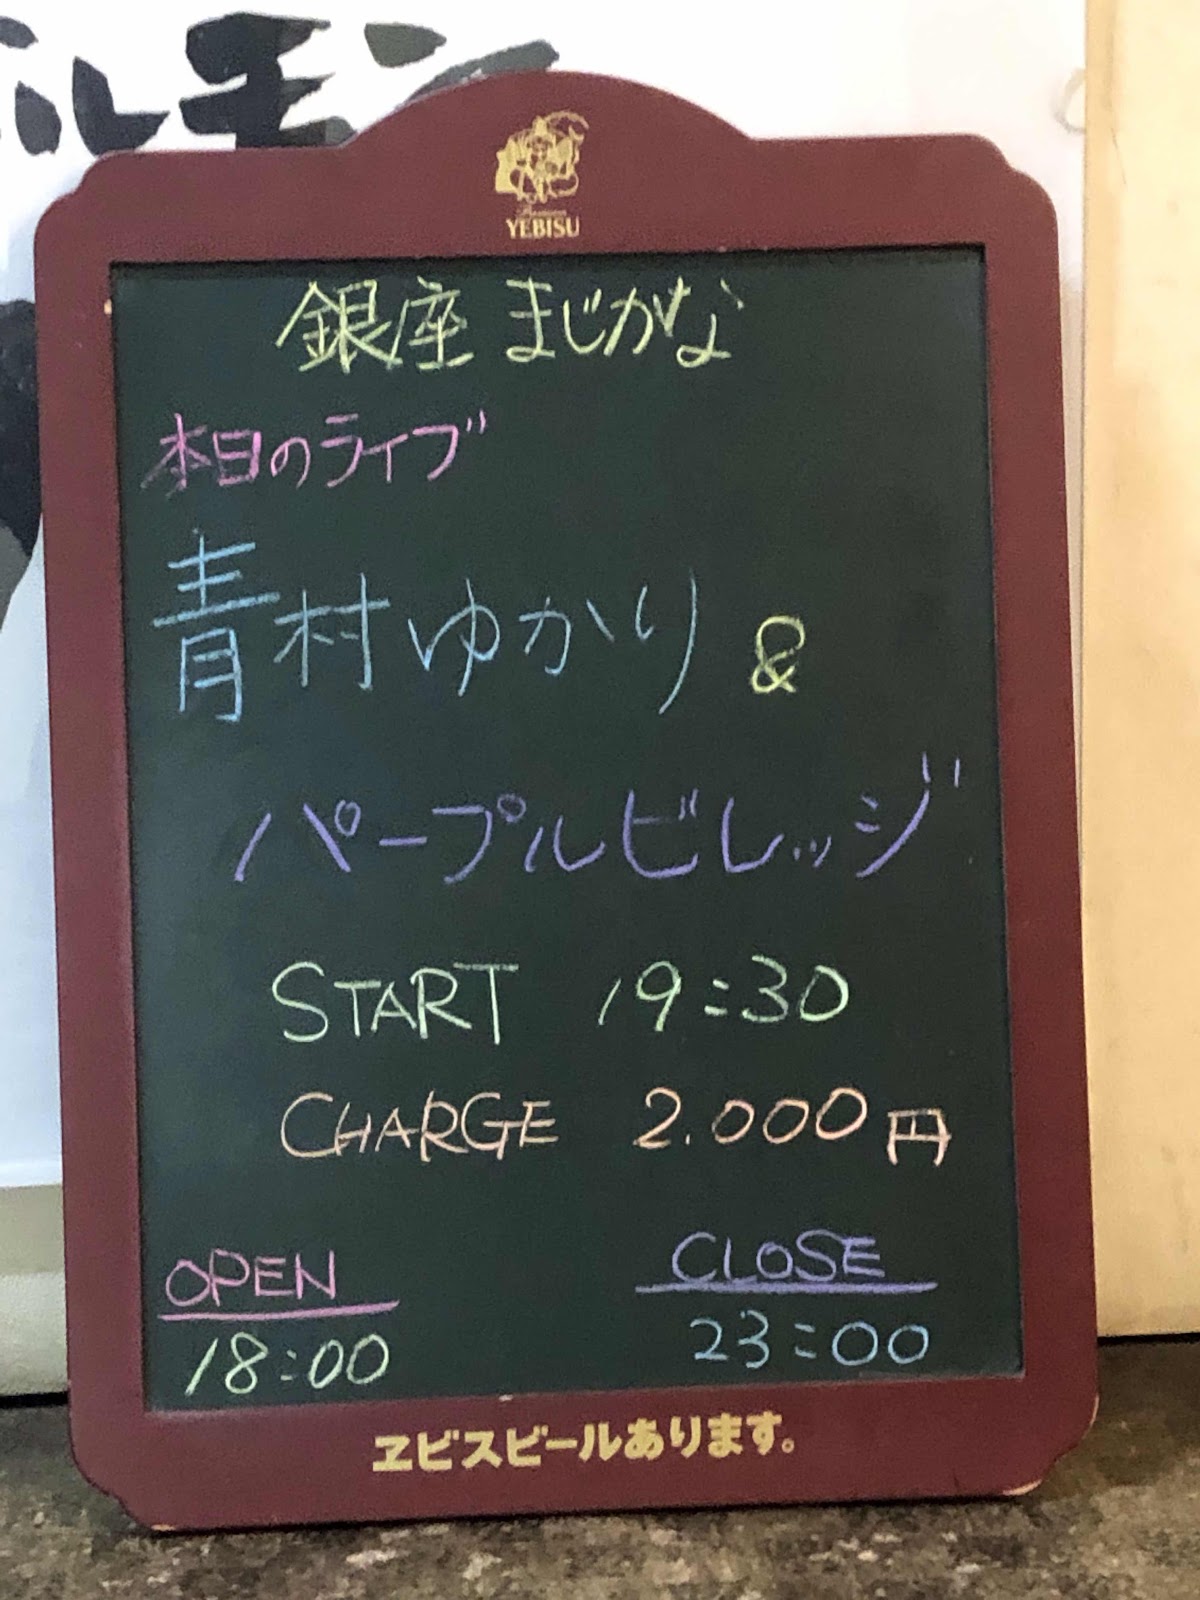 ルモン
Premium
YEBISU
銀座 まじかな
本日のライブ
青村ゆかり &
パープルビレッジ
START 19:30
CHARGE 2.000円
OPEN CLOSE
18:00 23:00
ヱビスビールあります。